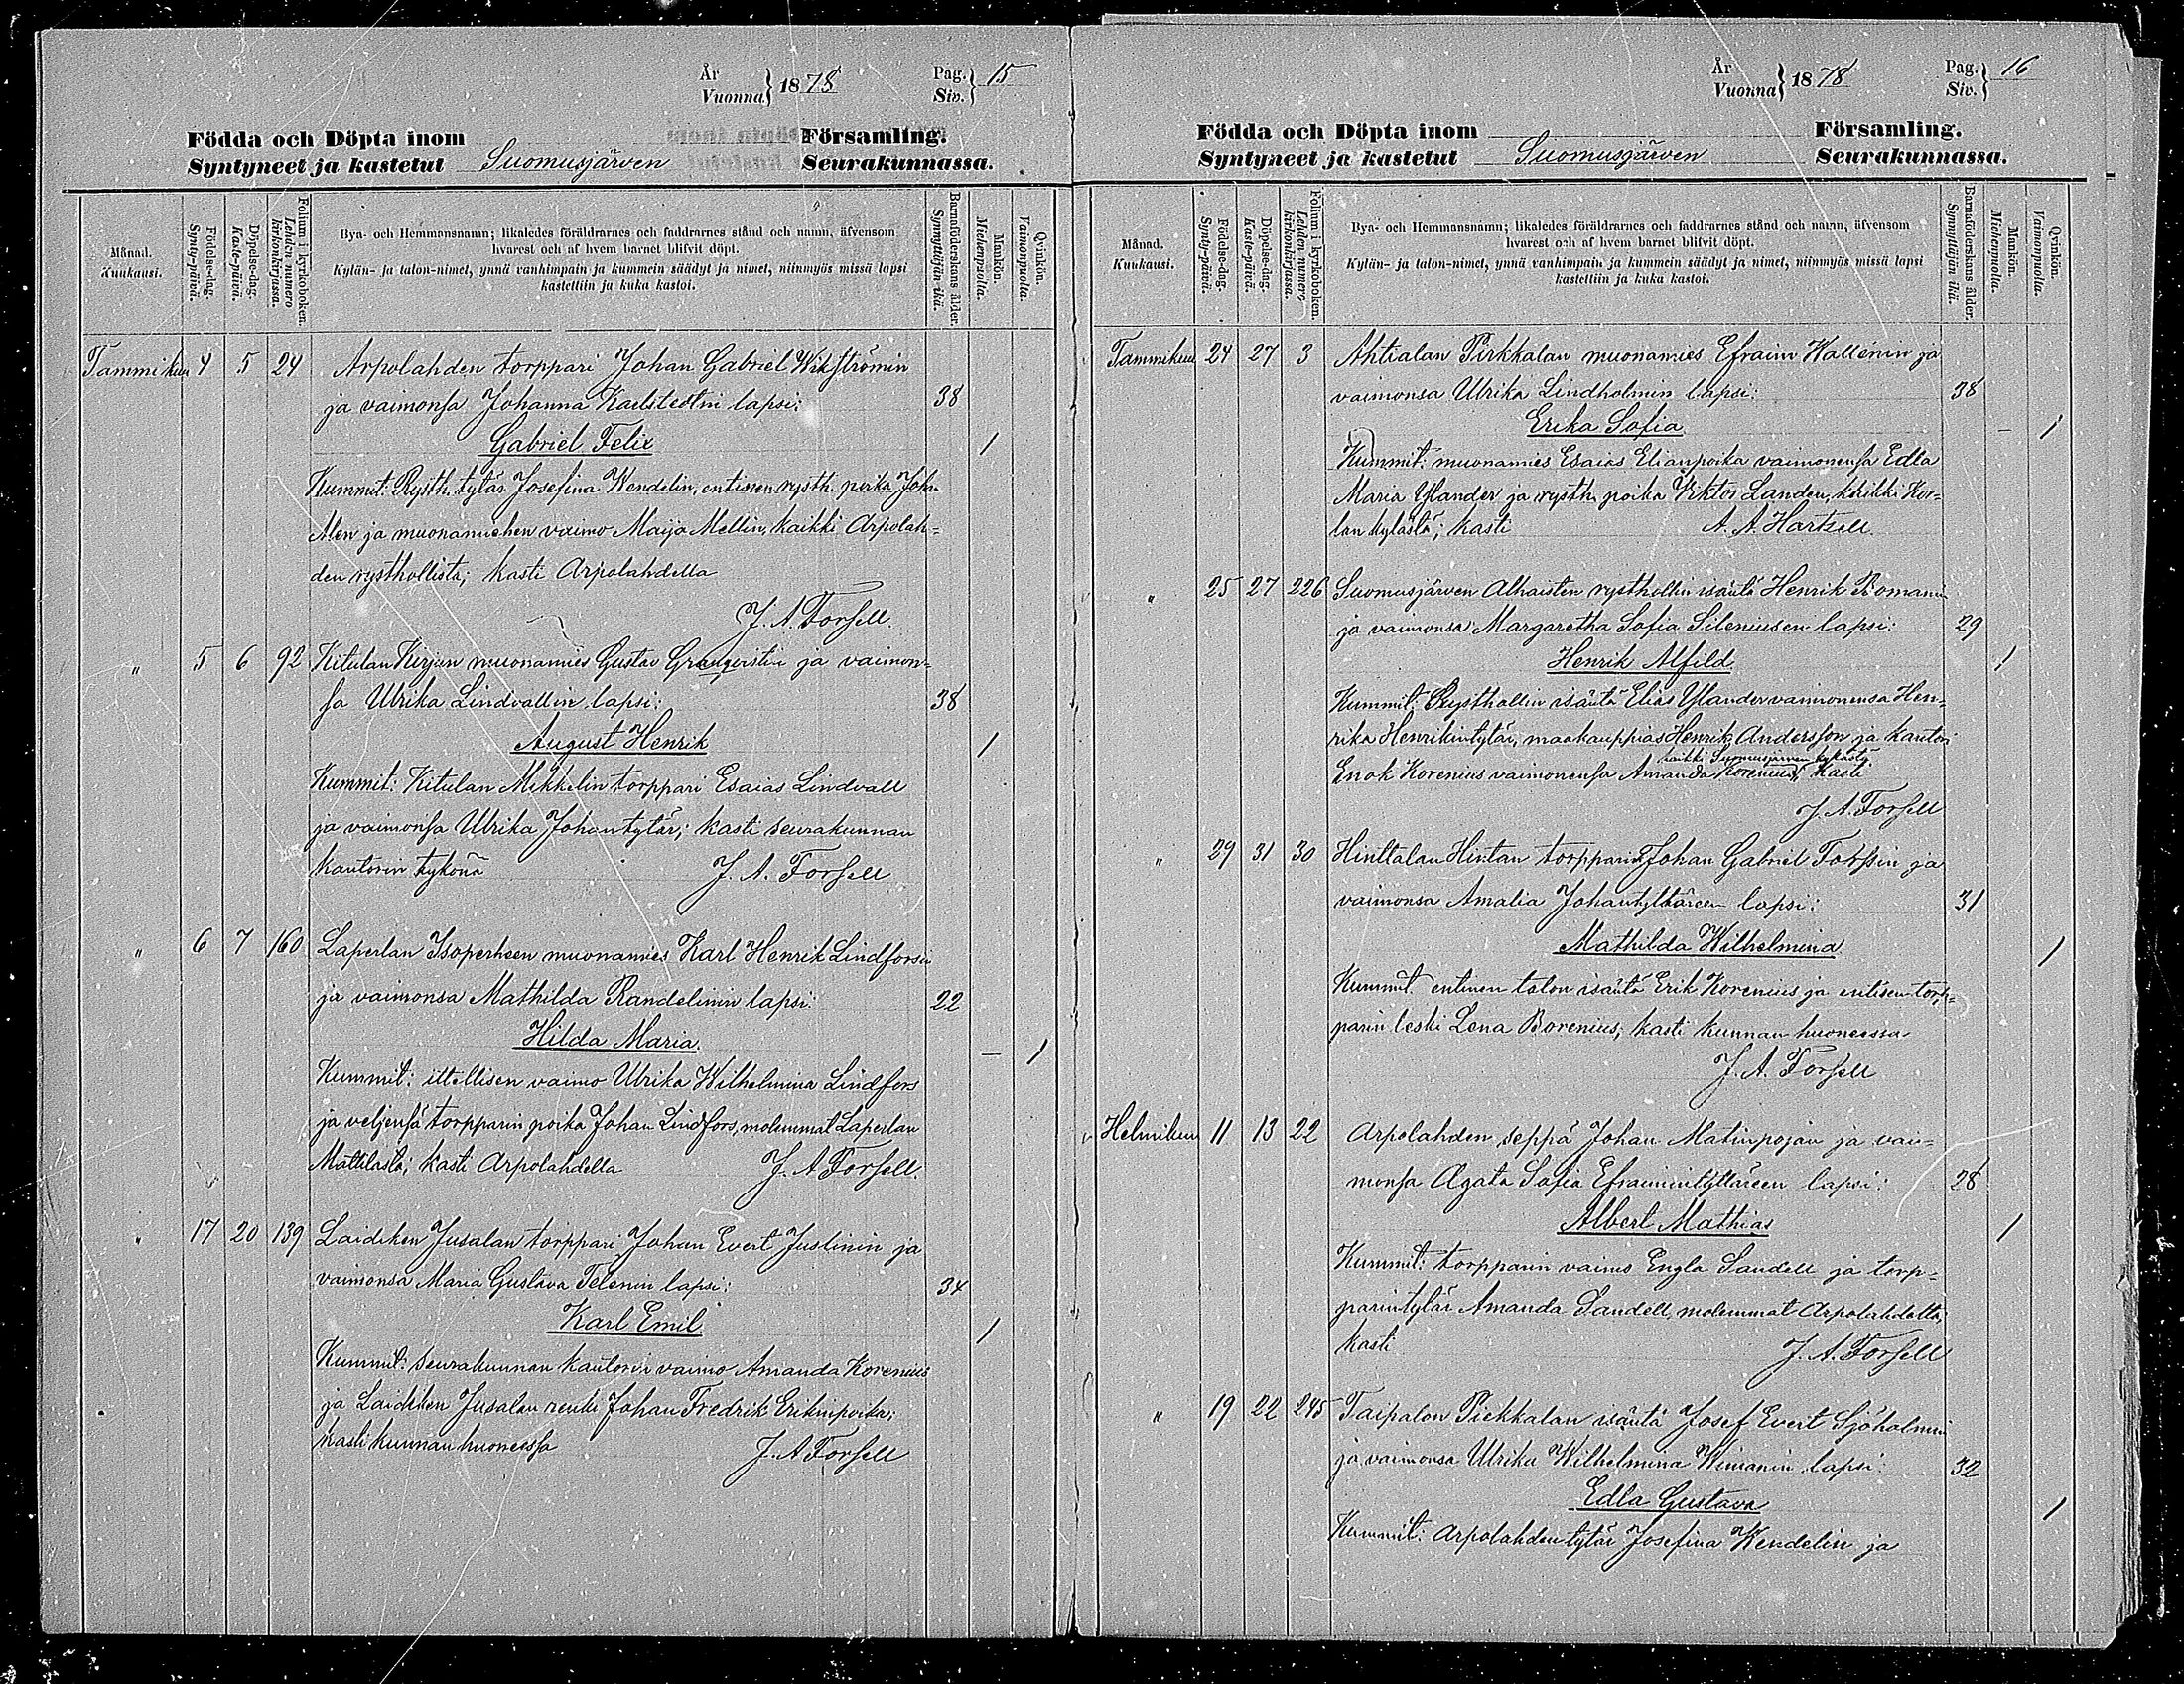 År
Vuonna } 1878 Pag.
Siv. } 15
Födda och Döpta inom Församling.
Syntyneet ja kastetut Suomusjärven Seurakunnassa.
Månad.
Kuukausi.
Födelse-dag.
Synty-päivä.
Döpelse-dag.
Kaste-päivä.
Folium i kyrkoboken.
Lehden numero
kirkonkirjassa.
Bya- och Hemmansnamn; likaledes föräldrarnes och faddrarnes stånd och namn, äfvensom
hvarest och af hvem barnet blifvit döpt.
Kylän- ja talon-nimet, ynnä vanhimpain ja kummein säädyt ja nimet, niinmyös missä lapsi
kastettiin ja kuka kastoi.
Barnaföderskans ålder.
Synnyttäjän ikä.
Mankön.
Miehenpuolta.
Qvinkön.
Vaimonpuolta.
Tammikuu 4 5 24 Arpolahden torppari Johan Gabriel Wikströmin
ja vaimonsa Johanna Karlstedtin lapsi: 38
Gabriel Felix 1
Kummit: Rysth. tytär Josefina Wendelin, entisen rysth. poika Johan
Alen ja muonamiehen vaimo Maija Mellin, kaikki Arpolah-
den rysthollista; kasti Arpolahdella
J. A. Forsell
" 5 6 92 Kitulan Kirjun muonamies Gustav Granqvistin ja vaimon-
sa Ulrika Lindvallin lapsi: 38
August Henrik 1
Kummit: Kitulan Mikkelin torppari Esaias Lindvall
ja vaimonsa Ulrika Johantytär; kasti seurakunnan
kanttorin tykönä J. A. Forsell
" 6 7 160 Laperlan Isoperheen muonamies Karl Henrik Lindforsin
ja vaimonsa Mathilda Randelinin lapsi: 22
Hilda Maria. — 1
Kummit: ittellisen vaimo Ulrika Wilhelmina Lindfors
ja veljensä torpparin poika Johan Lindfors, molemmat Laperlan
Mattilasta; kasti Arpolahdella J. A. Forsell.
" 17 20 139 Laidiken Jusalan torppari Johan Evert Justinin ja
vaimonsa Maria Gustava Telenin lapsi: 34
Karl Emil 1
Kummit: seurakunnan kanttorin vaimo Amanda Korenius
ja Laidiken Jusalan renki Johan Fredrik Erikinpoika;
kasti kunnan huoneessa J. A. Forsell
År
Vuonna } 1878 Pag.
Siv. } 16
Födda och Döpta inom Församling.
Syntyneet ja kastetut Suomusjärven Seurakunnassa.
Månad.
Kuukausi.
Födelse-dag.
Synty-päivä.
Döpelse-dag.
Kaste-päivä.
Folium i kyrkoboken.
Lehden numero
kirkonkirjassa.
Bya- och Hemmansnamn; likaledes föräldrarnes och faddrarnes stånd och namn, äfvensom
hvarest och af hvem barnet blifvit döpt.
Kylän- ja talon-nimet, ynnä vanhimpain ja kummein säädyt ja nimet, niinmyös missä lapsi
kastettiin ja kuka kastoi.
Barnaföderskans ålder.
Synnyttäjän ikä.
Mankön.
Miehenpuolta.
Qvinkön.
Vaimonpuolta.
Tammikuu 24 27 3 Ahtialan Pirkkalan muonamies Efraim Wallenin ja
vaimonsa Ulrika Lindholmin lapsi: 38
Erika Sofia — 1
Kummit: muonamies Esaias Elianpoika vaimonensa Edla
Maria Ylander ja rysth. poika Viktor Landen, kaikki Kur-
lan kylästä; kasti A. A. Hartzell.
" 25 27 226 Suomusjärven Alhaisten rysthollin isäntä Henrik Bomanin
ja vaimonsa Margaretha Sofia Sileniusen lapsi: 29
Henrik Alfild 1
Kummit: Rysthollin isäntä Elias Ylander vaimonensa Hen-
rika Henrikintytär, maakauppias Henrik Andersson ja kanttori
kaikki Suomusjärven kylästä
Enok Korenius vaimonensa Amanda Korenius; kasti
J. A. Forsell
" 29 31 30 Hinttalan Hintan torpparin Johan Gabriel Forssin ja
vaimonsa Amalia Johantyttären lapsi: 31
Mathilda Wilhelmina 1
Kummit entinen talon isäntä Erik Korenius ja entisen torp-
parin leski Lena Borenius; kasti kunnan huoneessa
J. A. Forsell
Helmikuu 11 13 22 Arpolahden seppä Johan Matinpojan ja vai-
monsa Agata Sofia Efraimintyttären lapsi: 28
Albert Mathias 1
Kummit: torpparin vaimo Engla Sandell ja torp-
parintytär Amanda Sandell, molemmat Arpolahdelta,
kasti J. A. Forsell
" 19 22 245 Taipalon Piekkalan isäntä Josef Evert Sjöholmin
ja vaimonsa Ulrika Wilhelmina Wimanin lapsi: 32
Edla Gustava 1
Kummit: Arpolahden tytär Josefina Wendelin ja